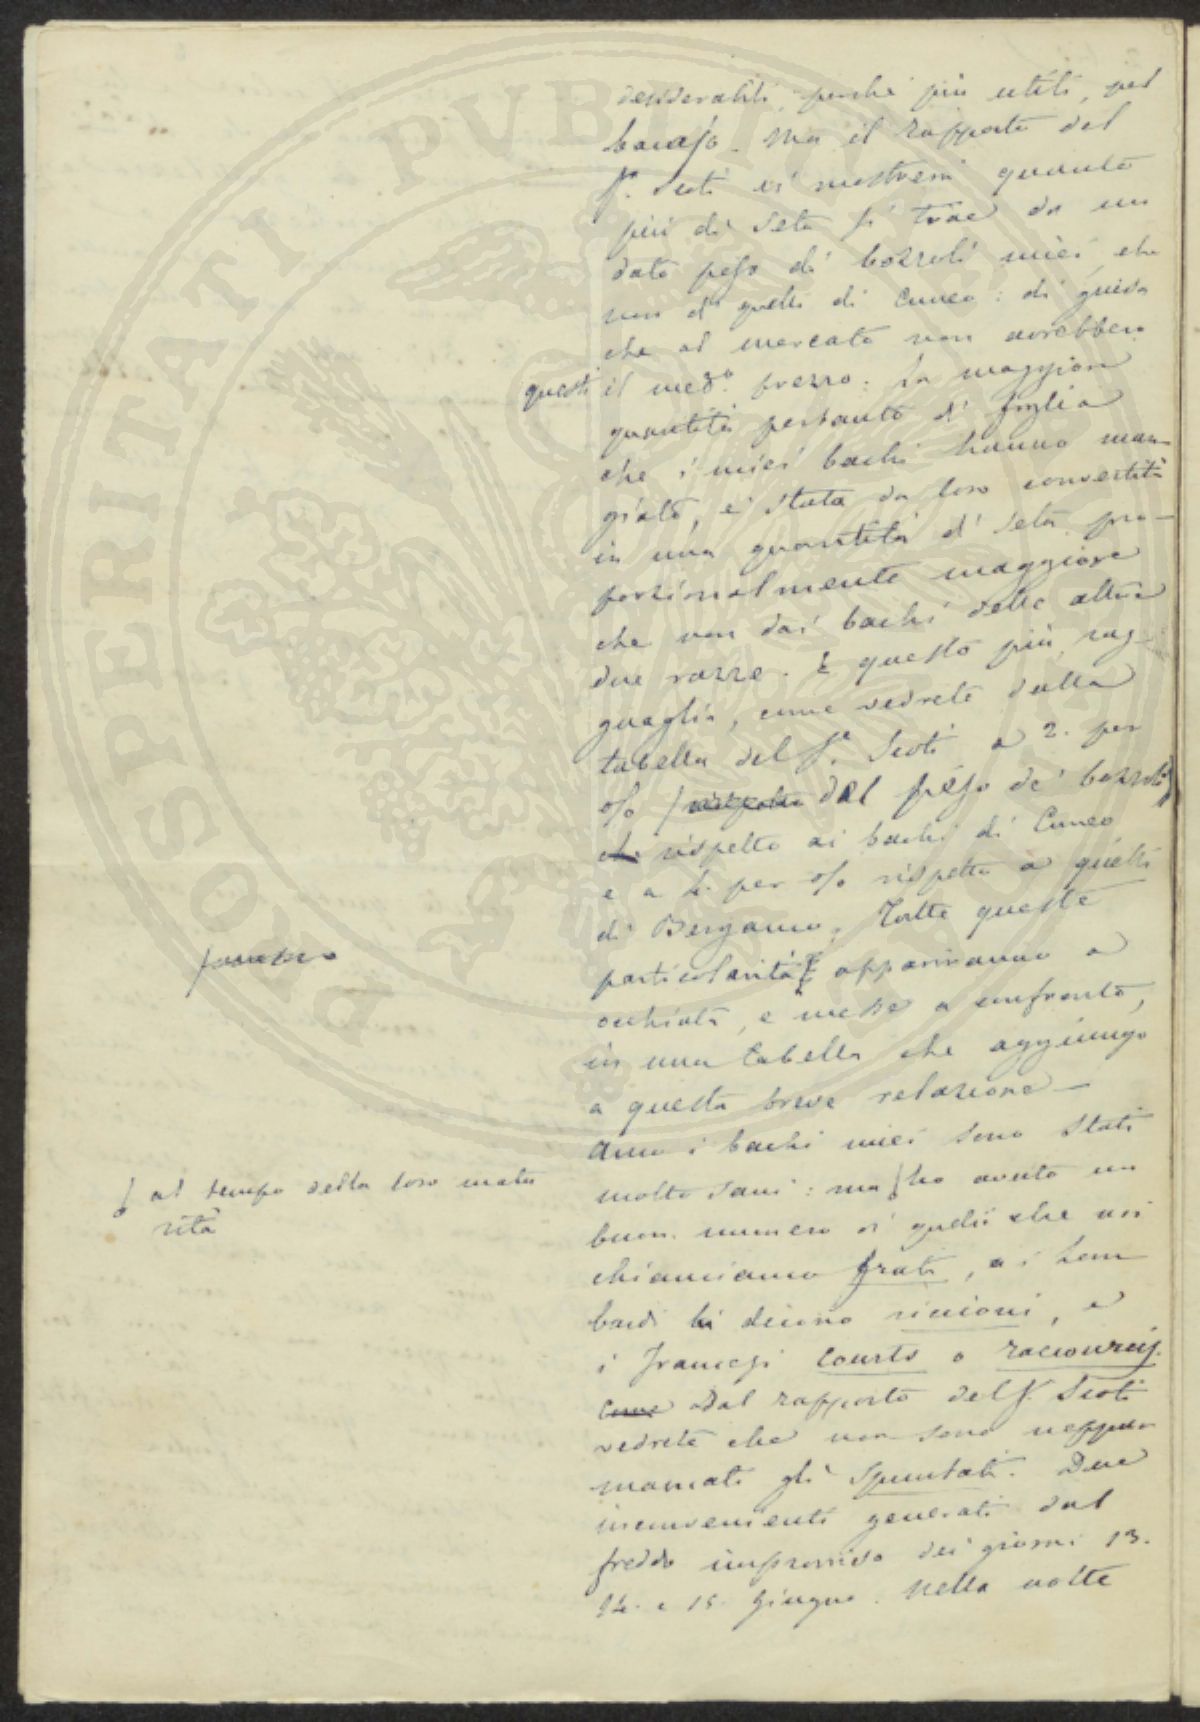 desiderabili, perché più utili, pel
bacajo. Ma il rapporto del
S.r Scoti vi mostrerà quanto
più di seta si trae da un
dato peso di bozzoli miei che
non di quelli di Cuneo: di guisa
che al mercato non avrebbero
questi il med.o prezzo: La maggiore
quantità pertanto di foglia
che i miei bachi hanno man-
giato, è stata da loro convertita
in una quantità di seta pro-
porzionalmente maggiore
che non dai bachi delle altre
due razze. E questo più, rag-
guaglia, come vedrete dalla
tabella del S.r Scoti a 2. per
% (rispetto dal peso de' bozzoli)
che rispetto ai bachi di Cuneo
e a 4. per % rispetto a quelli
di Bergamo. Tutte queste
particolarità appariranno a
occhiata, e messe a confronto,
in una tabella che aggiungo
a questa breve relazione —
saranno
Anno i bachi miei sono stati
molto sani: ma ho avuto un
al tempo della loro matu
rità
buon numero di quelli che noi
chiamiamo frati, a i Lom
bardi li dicono riccioni, e
i Francesi Courts o raccourcis.
Come Dal rapporto del S.r Scoti
vedrete che non sono neppur
mancati gli spuntati. Due
inconvenienti generati dal
freddo improvviso dei giorni 13.
14. e 15 Giugno. Nella notte
PROSPERITATI PVBLICAE